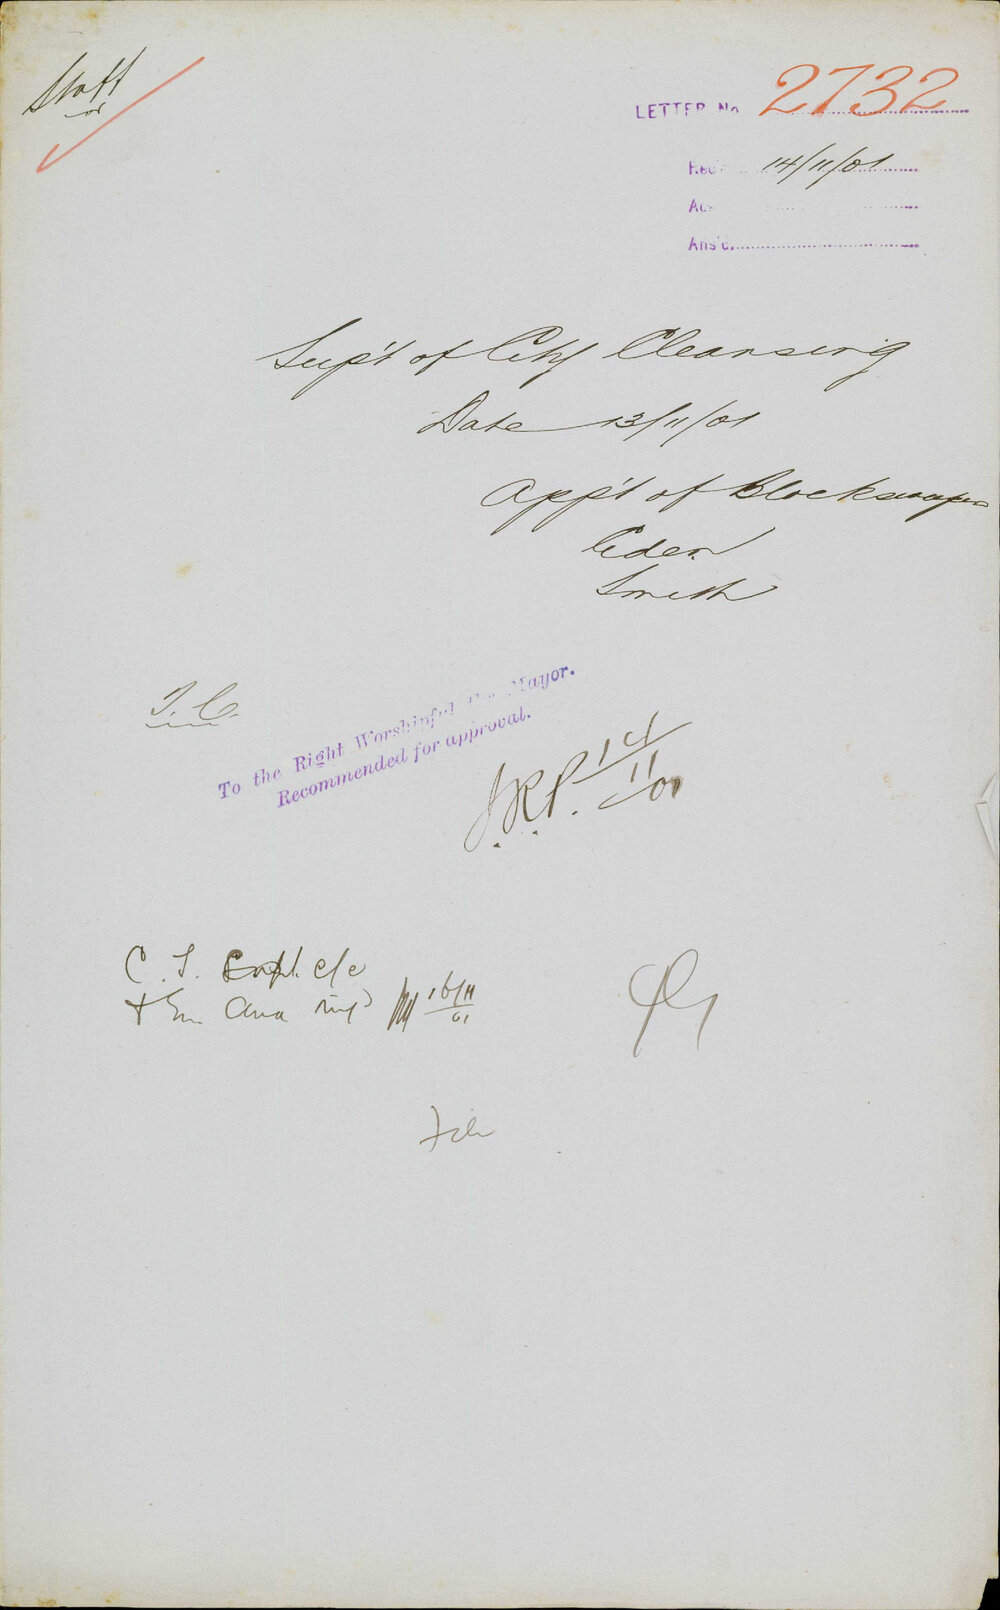 Staff
LETTER No 2732
Rec 14/11/01
Ac
Ans'd.
Sup't of City Cleansing
Date 13/11/01
App't of Blocksweepers
Eden
Smith
T. C.
To the Right Worshipful the Mayor.
Recommended for approval.
J.R.P. 14/11/01
C. S. Supt. c/c
16/11/01
File